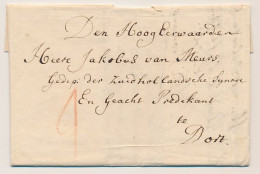 Den Hoog Eerwaarden
Heere Jakobus van Meurs,
Gedep. der Zuidhollandsche Synode
En Geacht Predikant
te
Dort.